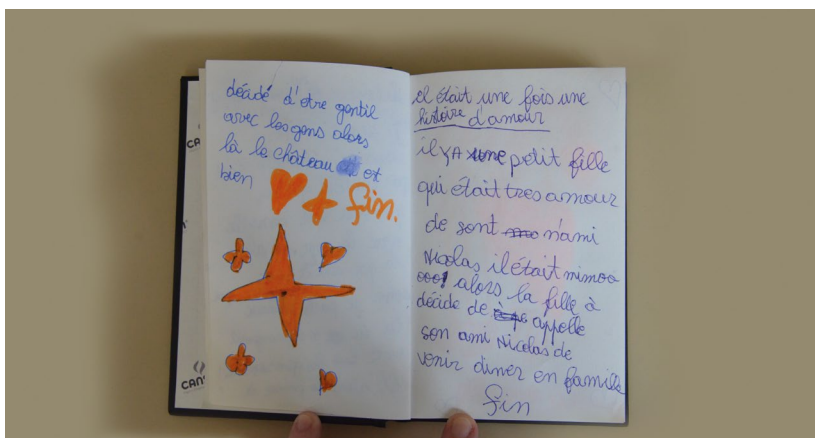 décidé d'etre gentil
avec les gens alors
là le château est
bien
fin.
il était une fois une
histoire d'amour
il YA une petit fille
qui était tres amour
de sont n'ami
Nicolas il était mimoo
ooo! alors la fille à
décide de appelle
son ami Nicolas de
venir diner en famille
fin
CA
CAN